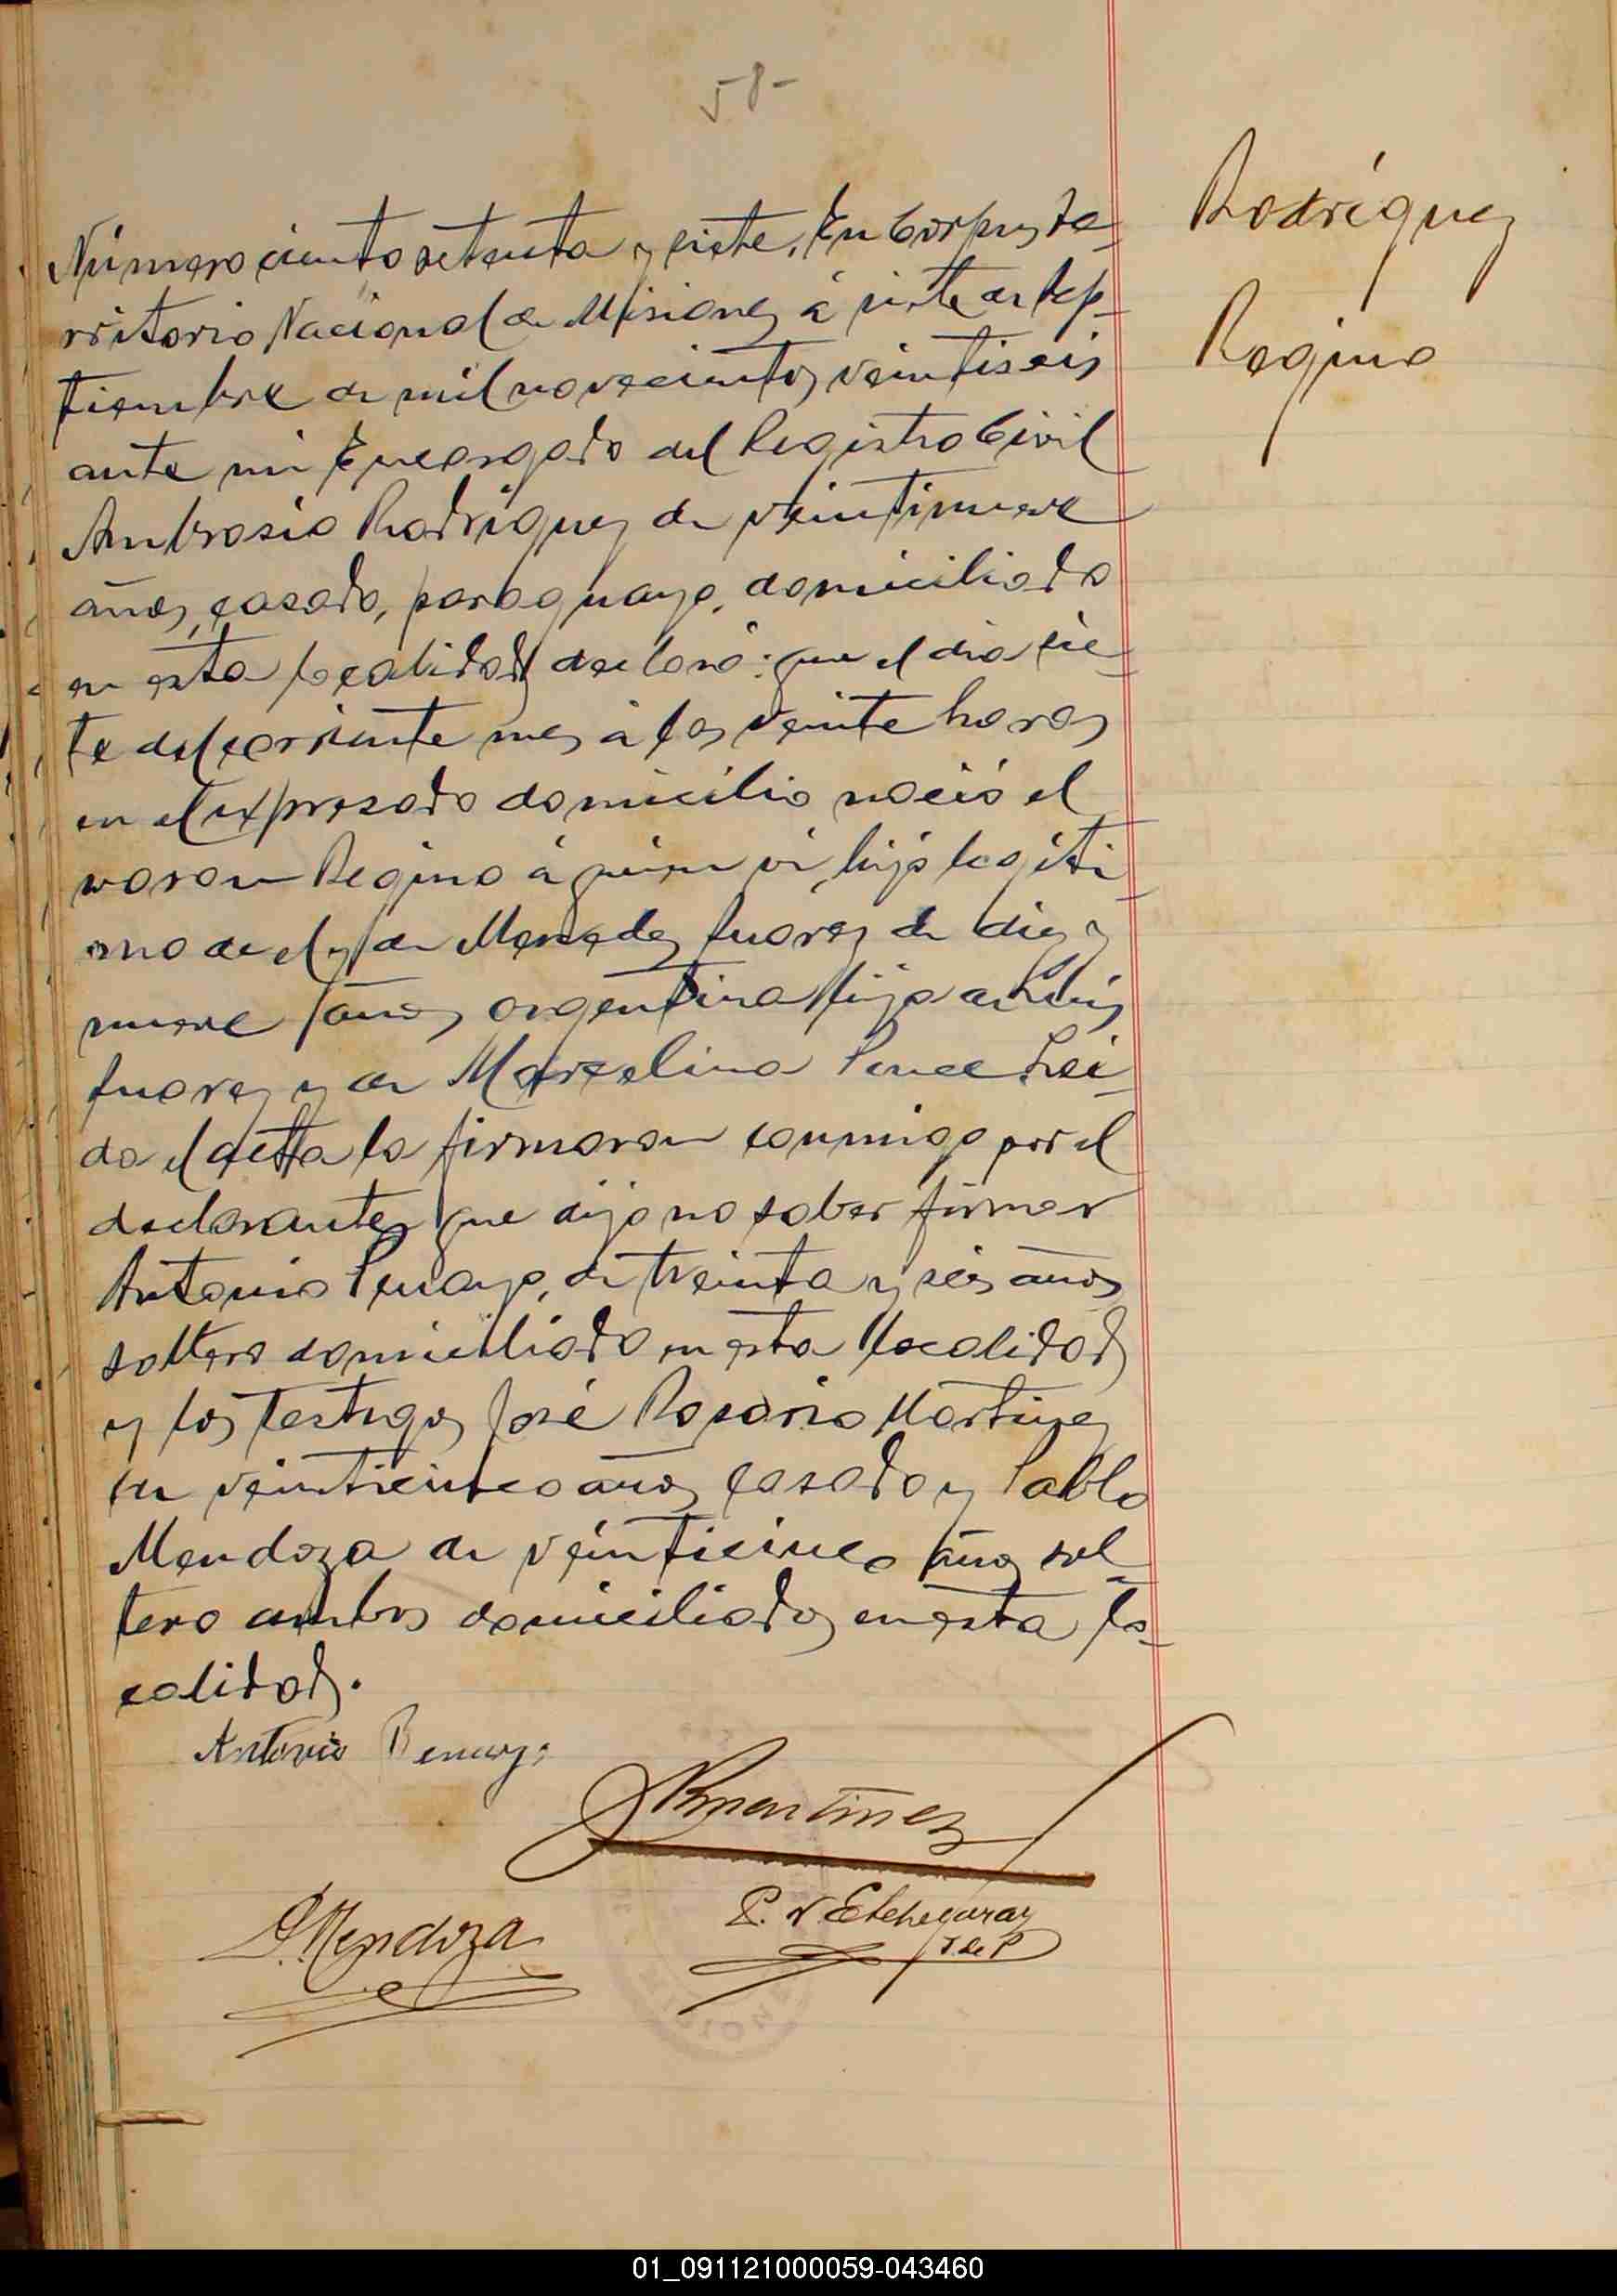 58-
Rodríguez
Regino
Número ciento setenta y siete. En Corpus, Te-
rritorio Nacional de Misiones á siete de Sep-
tiembre de mil novecientos veintiseis
ante mi Encargado del Registro Civil
Ambrosio Rodriguez de veintinueve
años, casado, paraguayo, domiciliado
en esta localidad declaró: que el dia sie-
te del corriente mes á las veinte horas
en el expresado domicilio nació el
varon Regino á quien vi, hijo legiti-
mo de el y de Mercedes Juarez de diez y
nueve años argentina hija de Luis
Juarez y de Marcelina Ponce. Lei-
da el acta la firmaron conmigo por el
declarante que dijo no saber firmar
Antonio Penayo, de treinta y seis años
soltero domiciliado en esta localidad
y los testigos José Rosario Martinez
de veinticinco años casado y Pablo
Mendoza de veinticinco años sol-
tero ambos domiciliados en esta lo-
calidad.
Antonio Penayo
Martinez
P. Mendoza
P. N. Etchegaray
J. de P
01_091121000059-043460